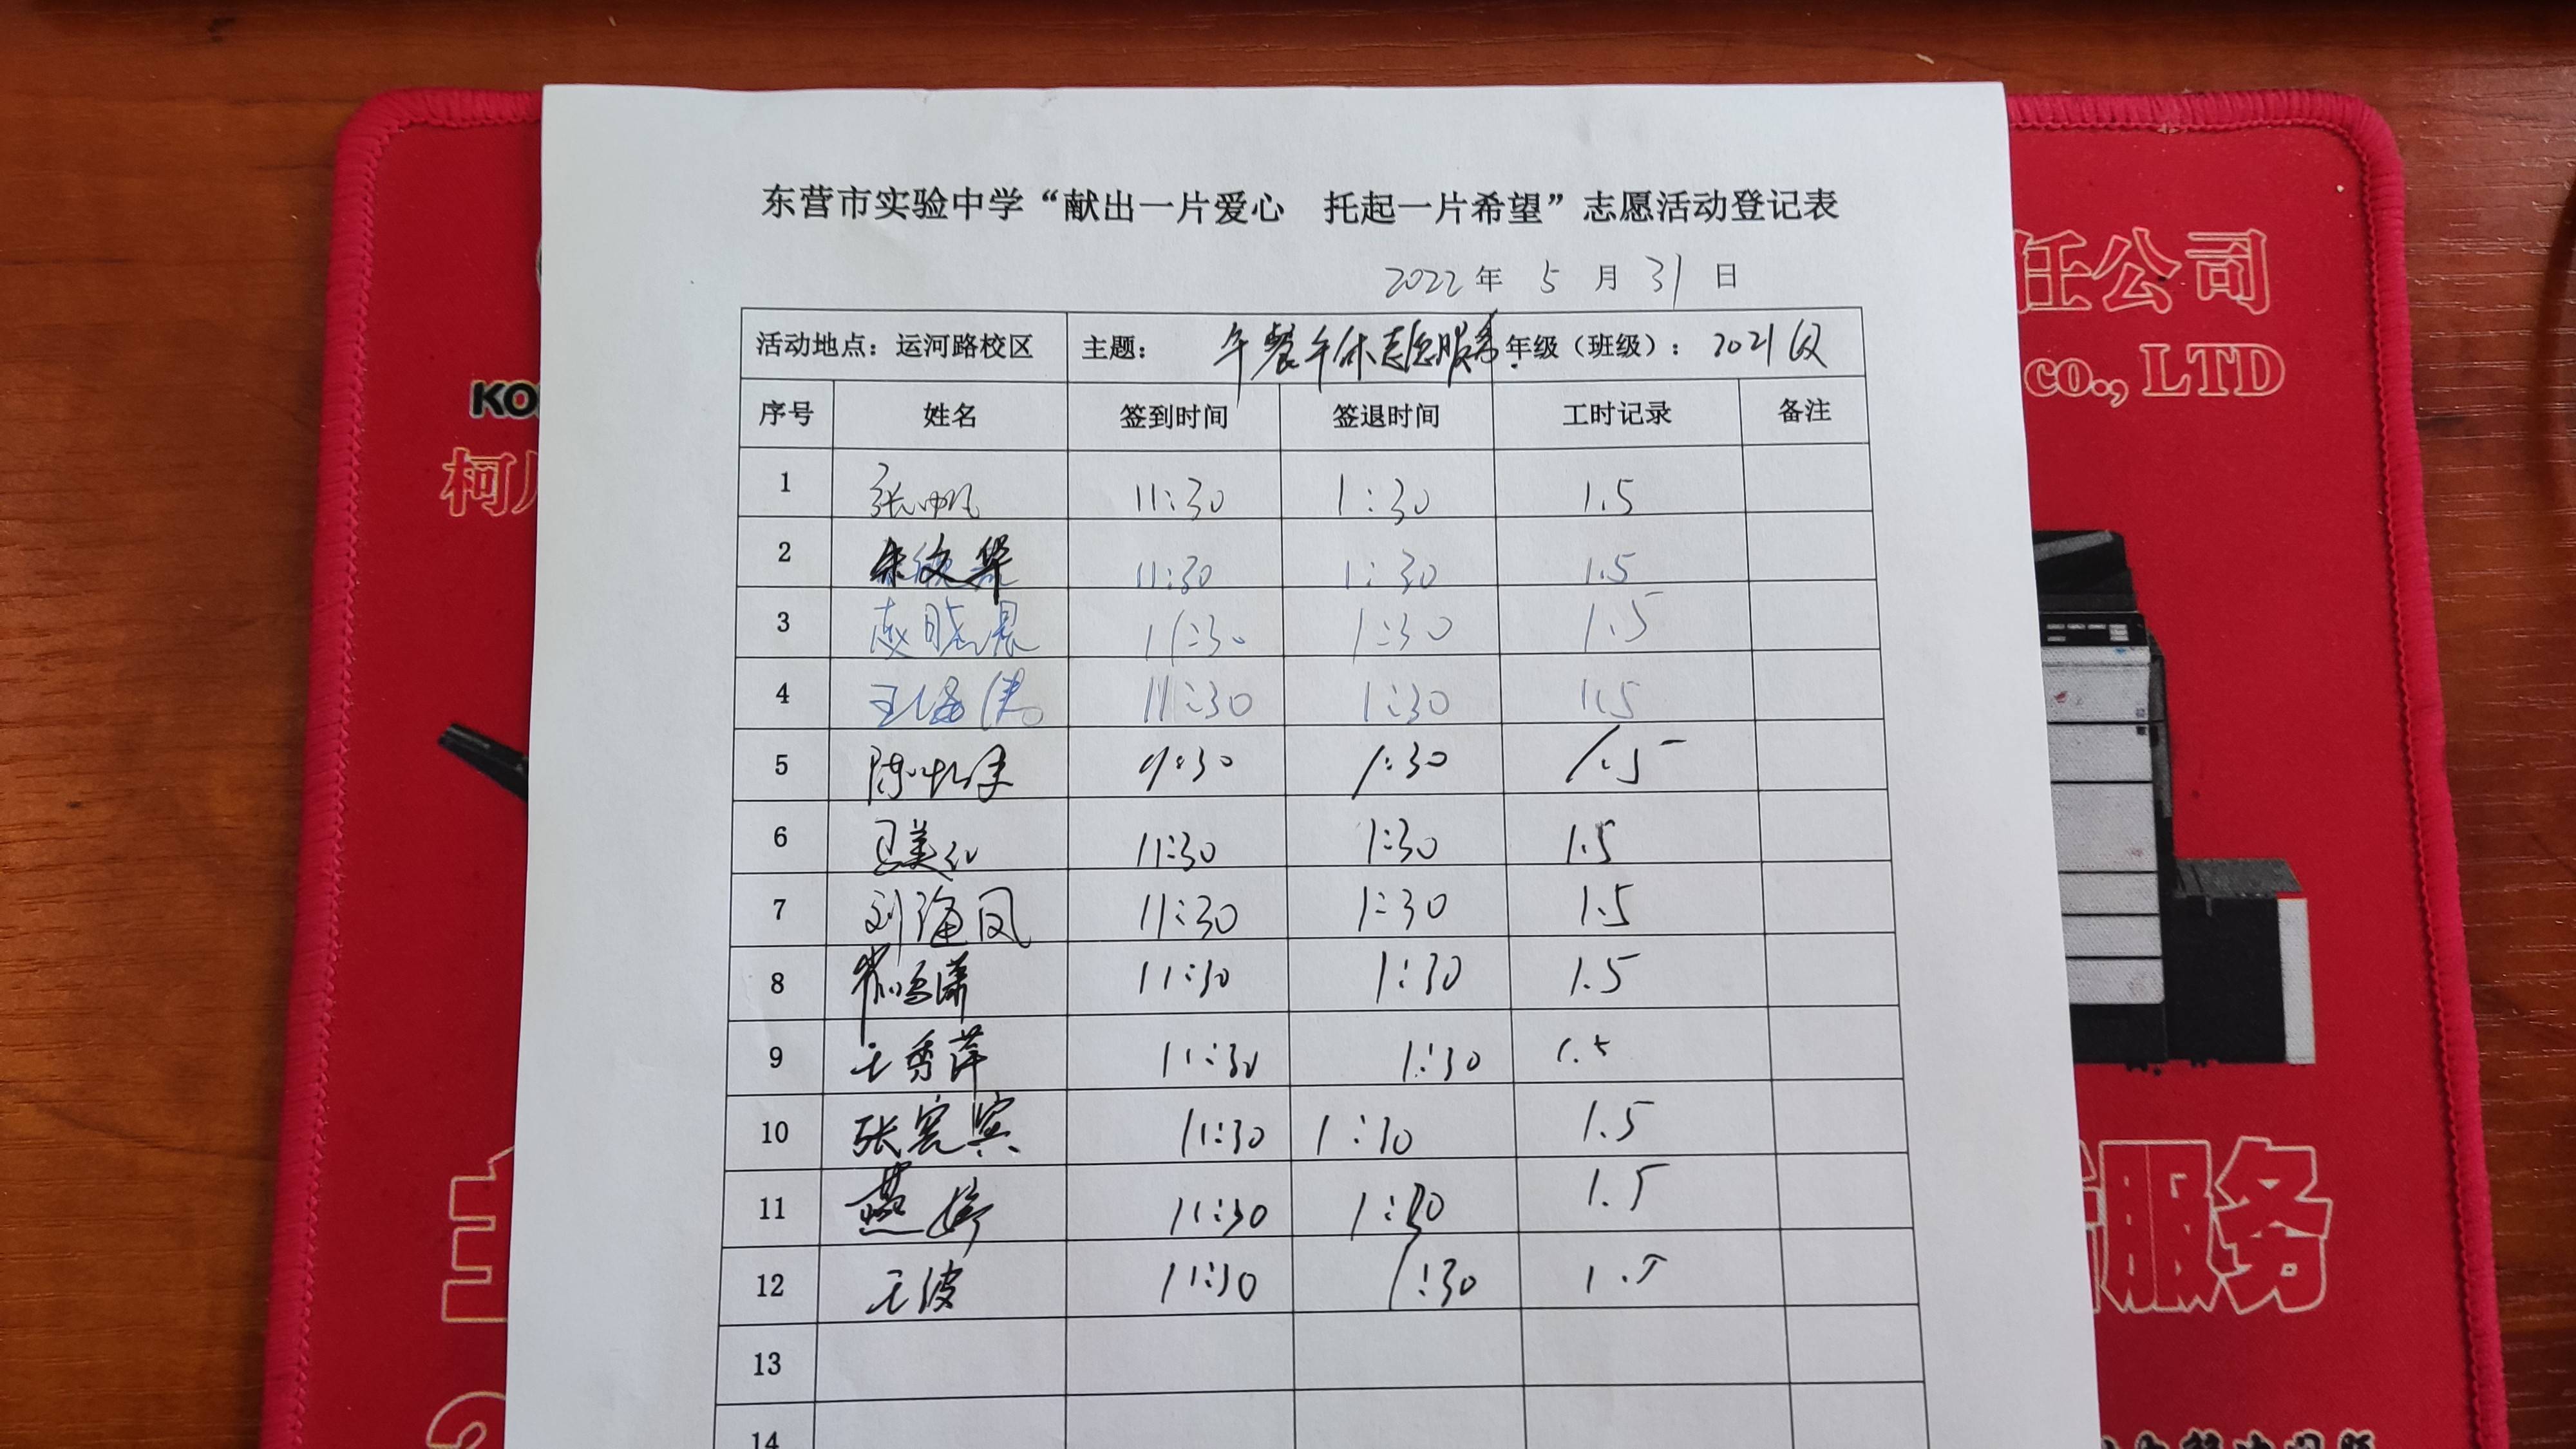 东营市实验中学“献出一片爱心 托起一片希望”志愿活动登记表
2022 年 5 月 31 日
任公司
CO., LTD
活动地点：运河路校区 主题： 午餐午休志愿服务. 年级（班级）：2021级
KO
柯
序号 姓名 签到时间 签退时间 工时记录 备注
1 张帆 11:30 1:30 1.5
2 朱效华 11:30 1:30 1.5
3 赵晓晨 11:30 1:30 1.5
4 王海 11:30 1:30 1.5
5 陈 11:30 1:30 1.5
6 美红 11:30 1:30 1.5
7 刘海凤 11:30 1:30 1.5
8 11:30 1:30 1.5
9 王秀萍 11:30 1:30 1.5
10 张宪宾 11:30 1:30 1.5
11 燕婷 11:30 1:30 1.5
12 王波 11:30 1:30 1.5
服务
13
14